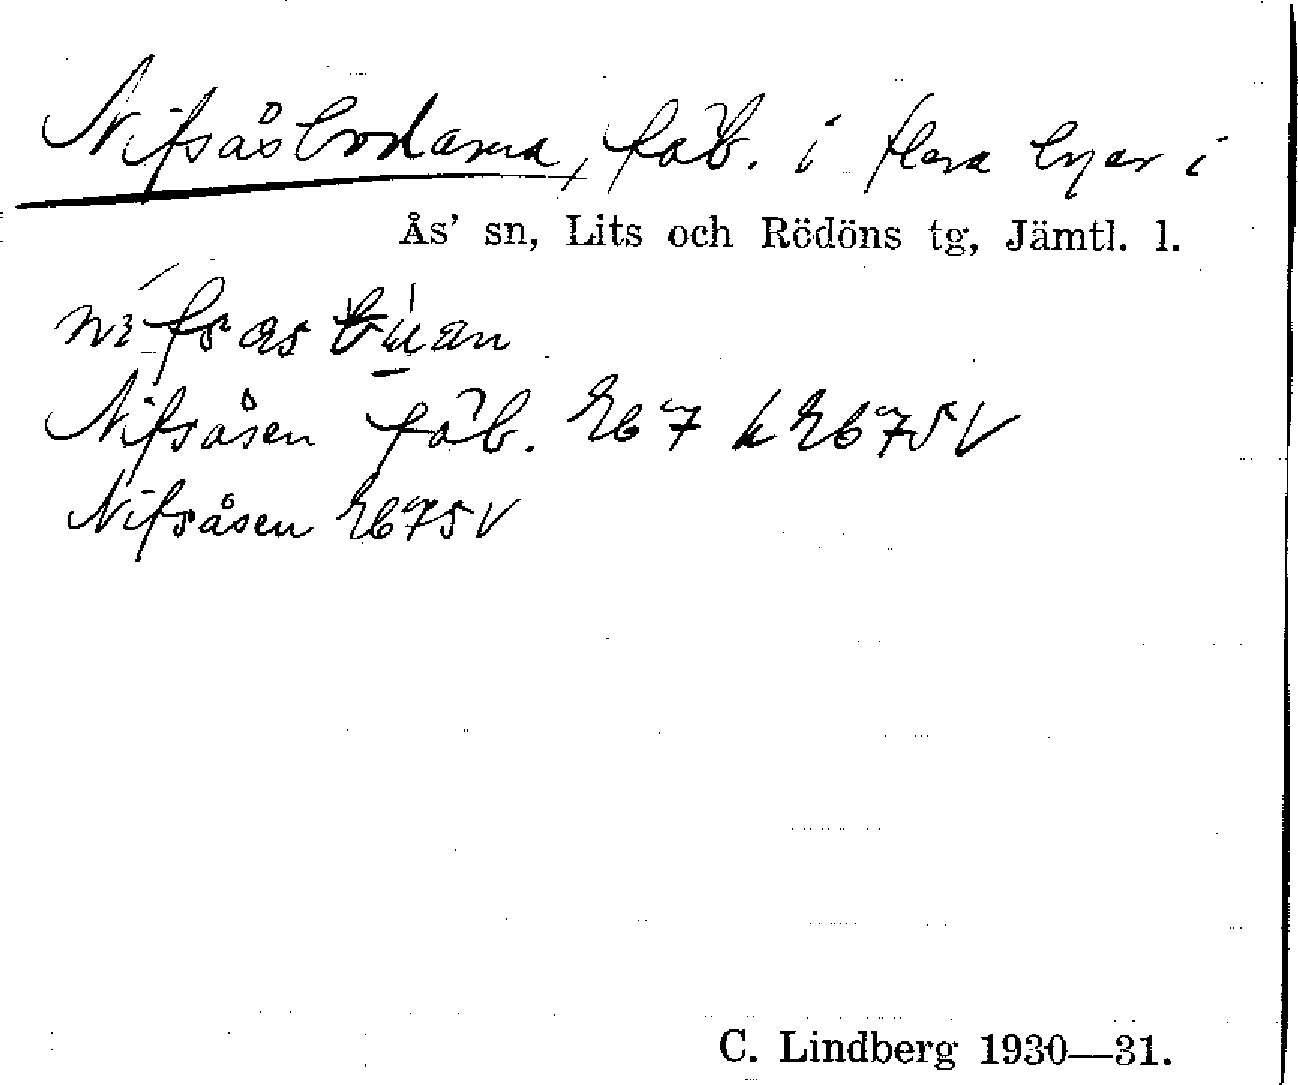 Nifsåsbodarna, fäb. i flera byar i
Ås' sn, Lits och Rödöns tg, Jämtl. l.
Nifsåsen fäb.
Nifsåsen
C. Lindberg 1930—31.